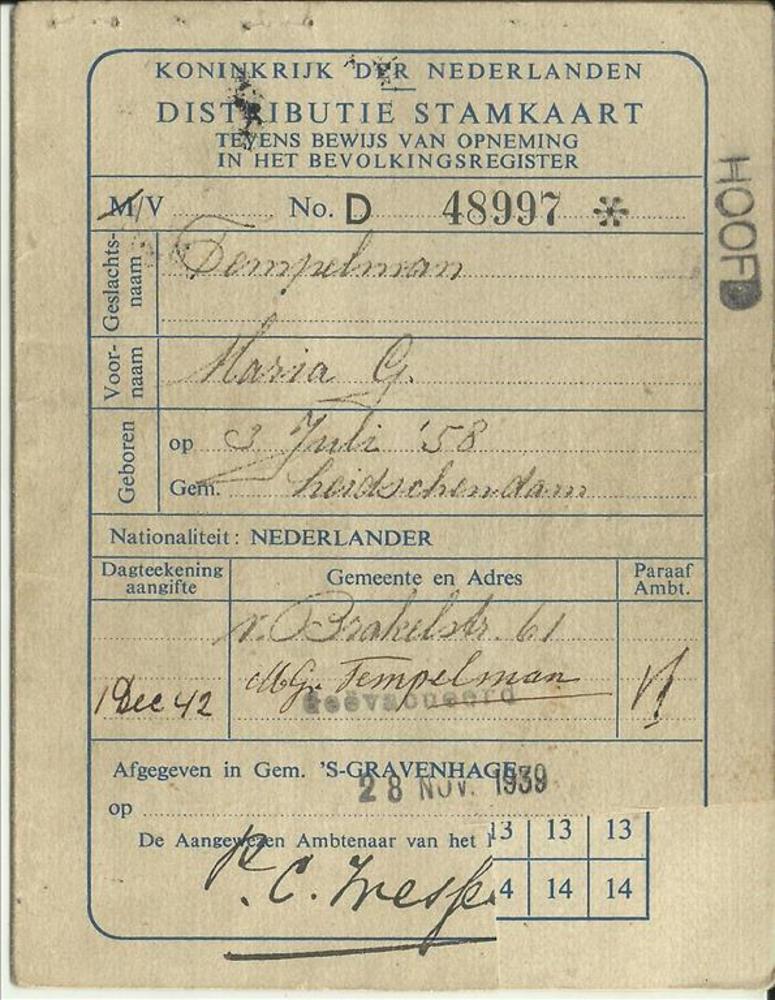 KONINKRIJK DER NEDERLANDEN
DISTRIBUTIE STAMKAART
TEVENS BEWIJS VAN OPNEMING
IN HET BEVOLKINGSREGISTER
M/V No. D 48997 *
HOOFD
Geslachts-
naam
Tempelman
Voor-
naam
Maria G.
Geboren
op 3 Juli '58
Gem. Leidschendam
Nationaliteit: NEDERLANDER
Dagteekening
aangifte
Gemeente en Adres
Paraaf
Ambt.
v. Brakelstr. 61
1 Dec 42
MG. Tempelman
Geëvacueerd
Afgegeven in Gem. 'S-GRAVENHAGE
op 28 NOV. 1939
De Aangewezen Ambtenaar van het
13 13 13
4 14 14